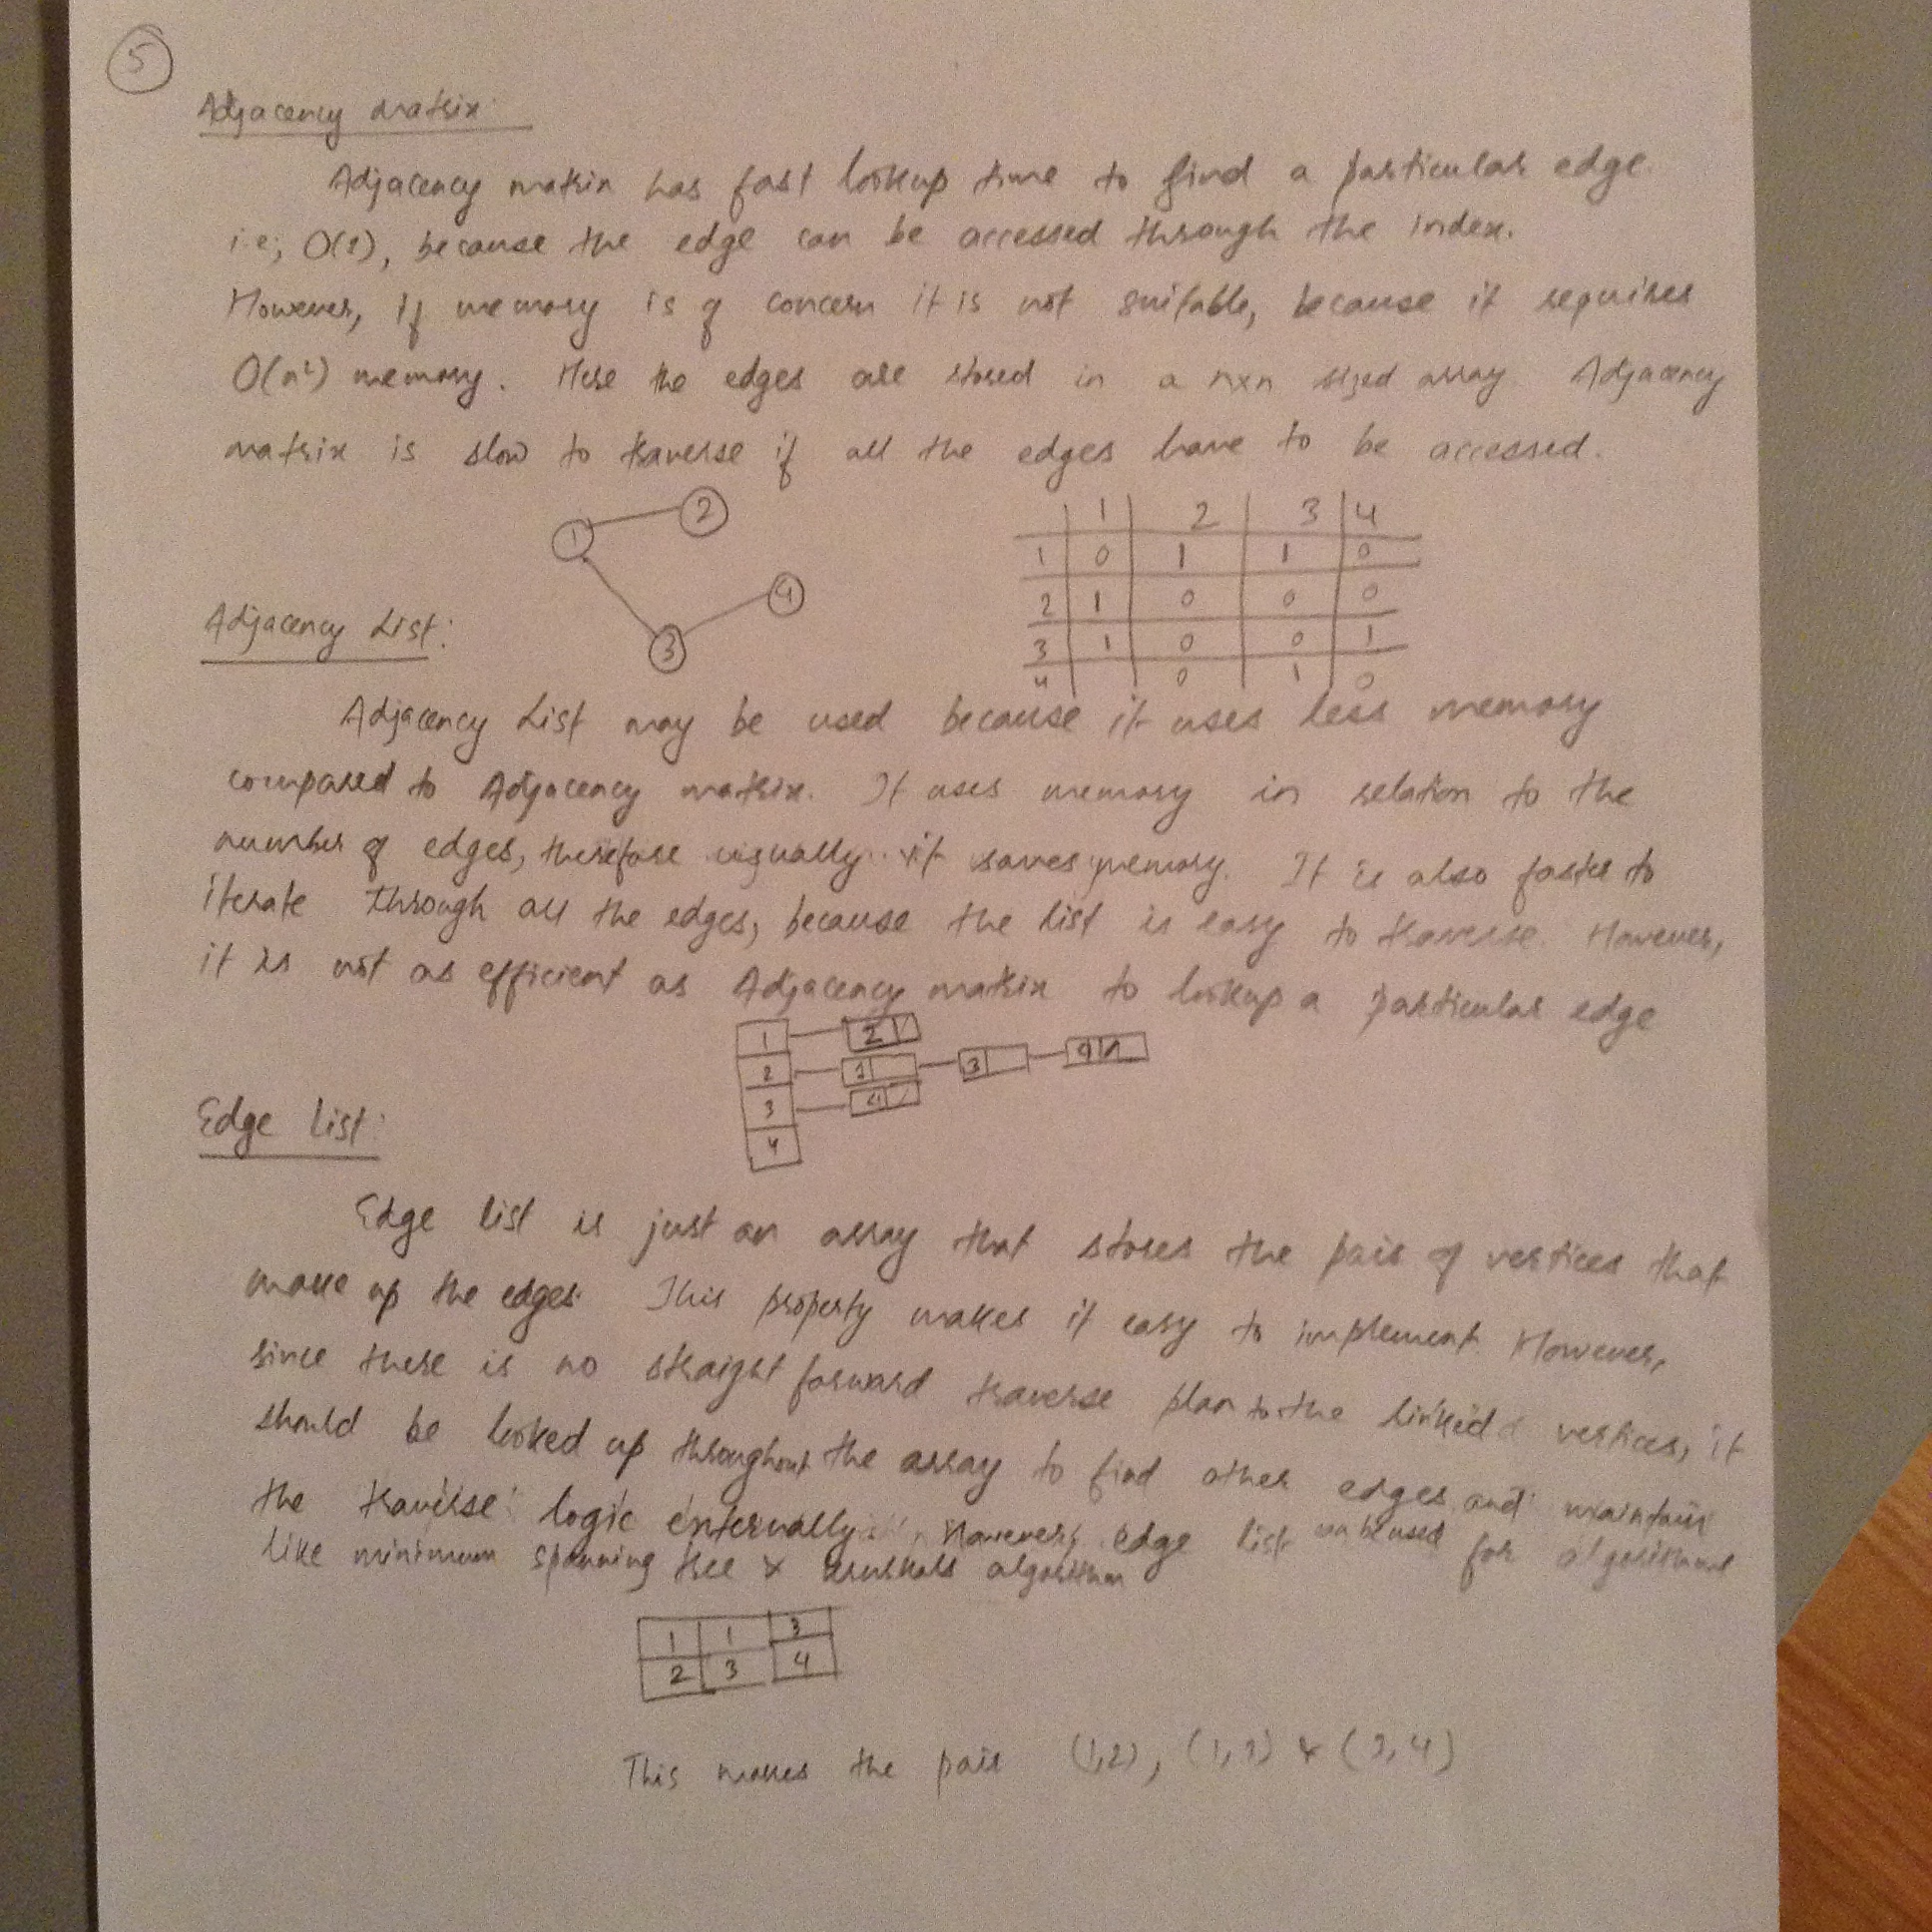 5
Adjacency matrix:
Adjacency matrix has fast lookup time to find a particular edge.
i.e; O(1), because the edge can be accessed through the index.
However, If memory is of concern it is not suitable, because it requires
O(n²) memory. Here the edges are stored in a nxn sized array. Adjacency
matrix is slow to traverse if all the edges have to be accessed.
1 2 3 4
1 2 3 4
1 0 1 1 0
2 1 0 0 0
3 1 0 0 1
4 0 1 0
Adjacency List:
Adjacency List may be used because it uses less memory
compared to Adjacency matrix. It uses memory in relation to the
number of edges, therefore usually it saves memory. It is also faster to
iterate through all the edges, because the list is easy to traverse. However,
it is not as efficient as Adjacency matrix to lookup a particular edge
1 2
2 1 3
3 4
4
Edge List:
Edge list is just an array that stores the pair of vertices that
make up the edges. This property makes it easy to implement. However,
since there is no straight forward traverse plan to the linked vertices, it
should be looked up throughout the array to find other edges and maintain
the traverse logic externally. However, edge list can be used for algorithms
like minimum spanning tree & kruskals algorithm
1 1 3
2 3 4
This makes the pair (1,2), (1,3) & (3,4)